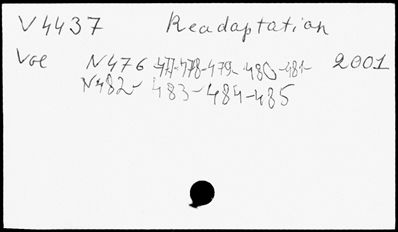 V4437 Readaptation
Vol N476-477-478-479-480-481- 2001
N482- 483-484-485